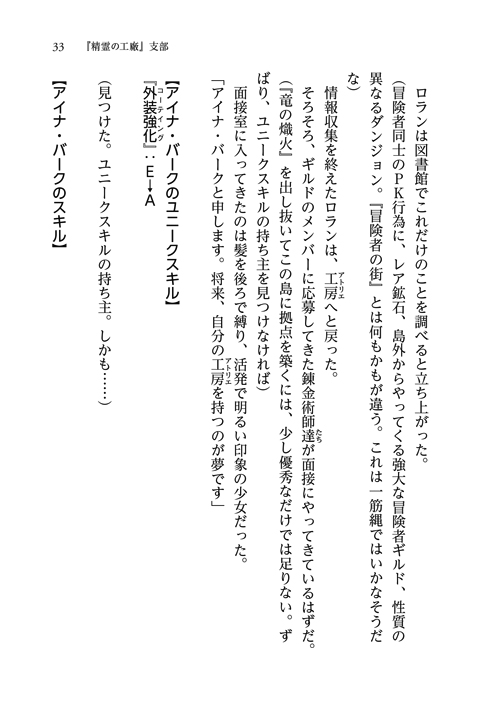 33 『精霊の工廠』支部
ロランは図書館でこれだけのことを調べると立ち上がった。
(冒険者同士のPK行為に、レア鉱石、島外からやってくる強大な冒険者ギルド、性質の
異なるダンジョン。『冒険者の街』とは何もかもが違う。これは一筋縄ではいかなそうだ
な)
情報収集を終えたロランは、工房へと戻った。
アトリエ
そろそろ、ギルドのメンバーに応募してきた錬金術師達が面接にやってきているはずだ。
たち
(『竜の熾火』を出し抜いてこの島に拠点を築くには、少し優秀なだけでは足りない。ず
ばり、ユニークスキルの持ち主を見つけなければ)
面接室に入ってきたのは髪を後ろで縛り、活発で明るい印象の少女だった。
「アイナ・バークと申します。将来、自分の工房を持つのが夢です」
アトリエ
【アイナ・バークのユニークスキル】
『外装強化』:E→A
コーティング
(見つけた。ユニークスキルの持ち主。しかも……)
【アイナ・バークのスキル】